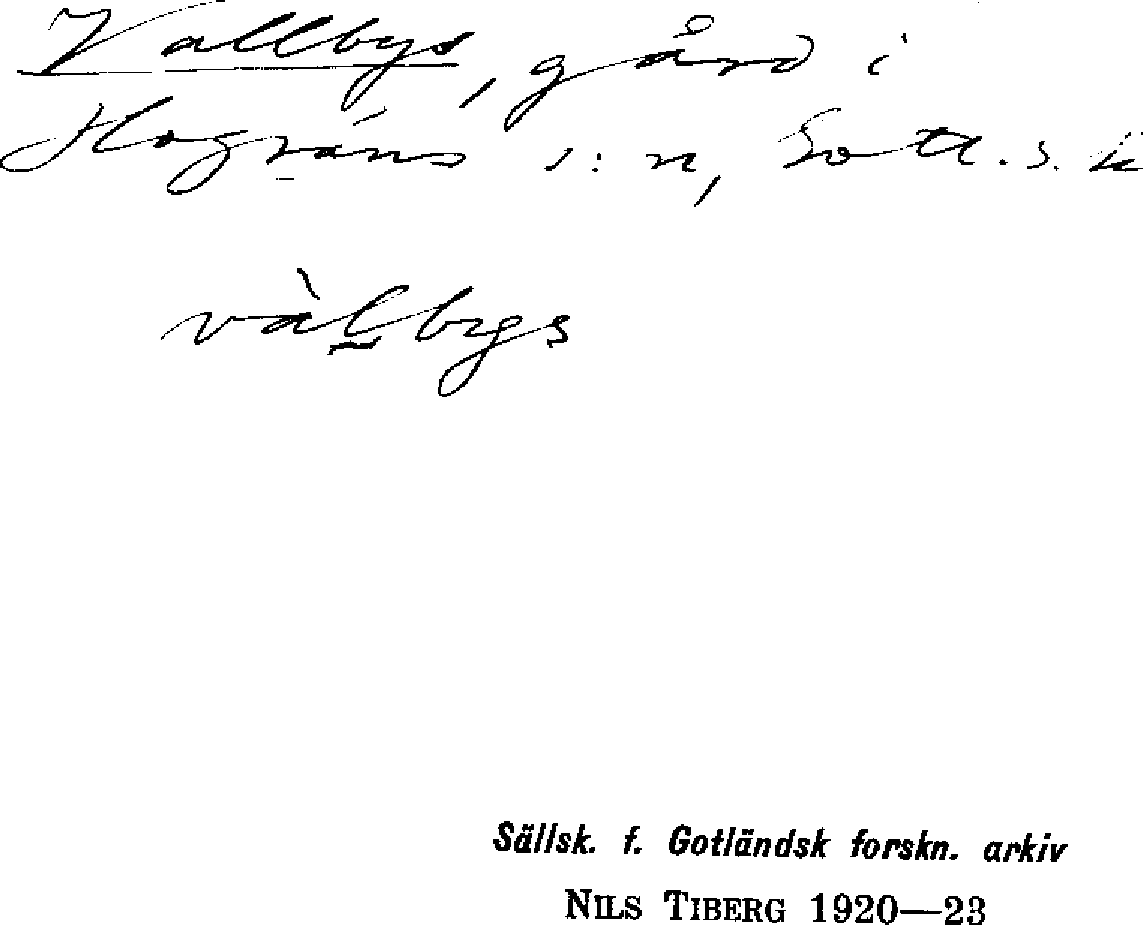 Vallbys, gård i
Hogräns s:n, Gotl. s. h
väl̰bys
Sällsk. f. Gotländsk forskn. arkiv
NILS TIBERG 1920—23